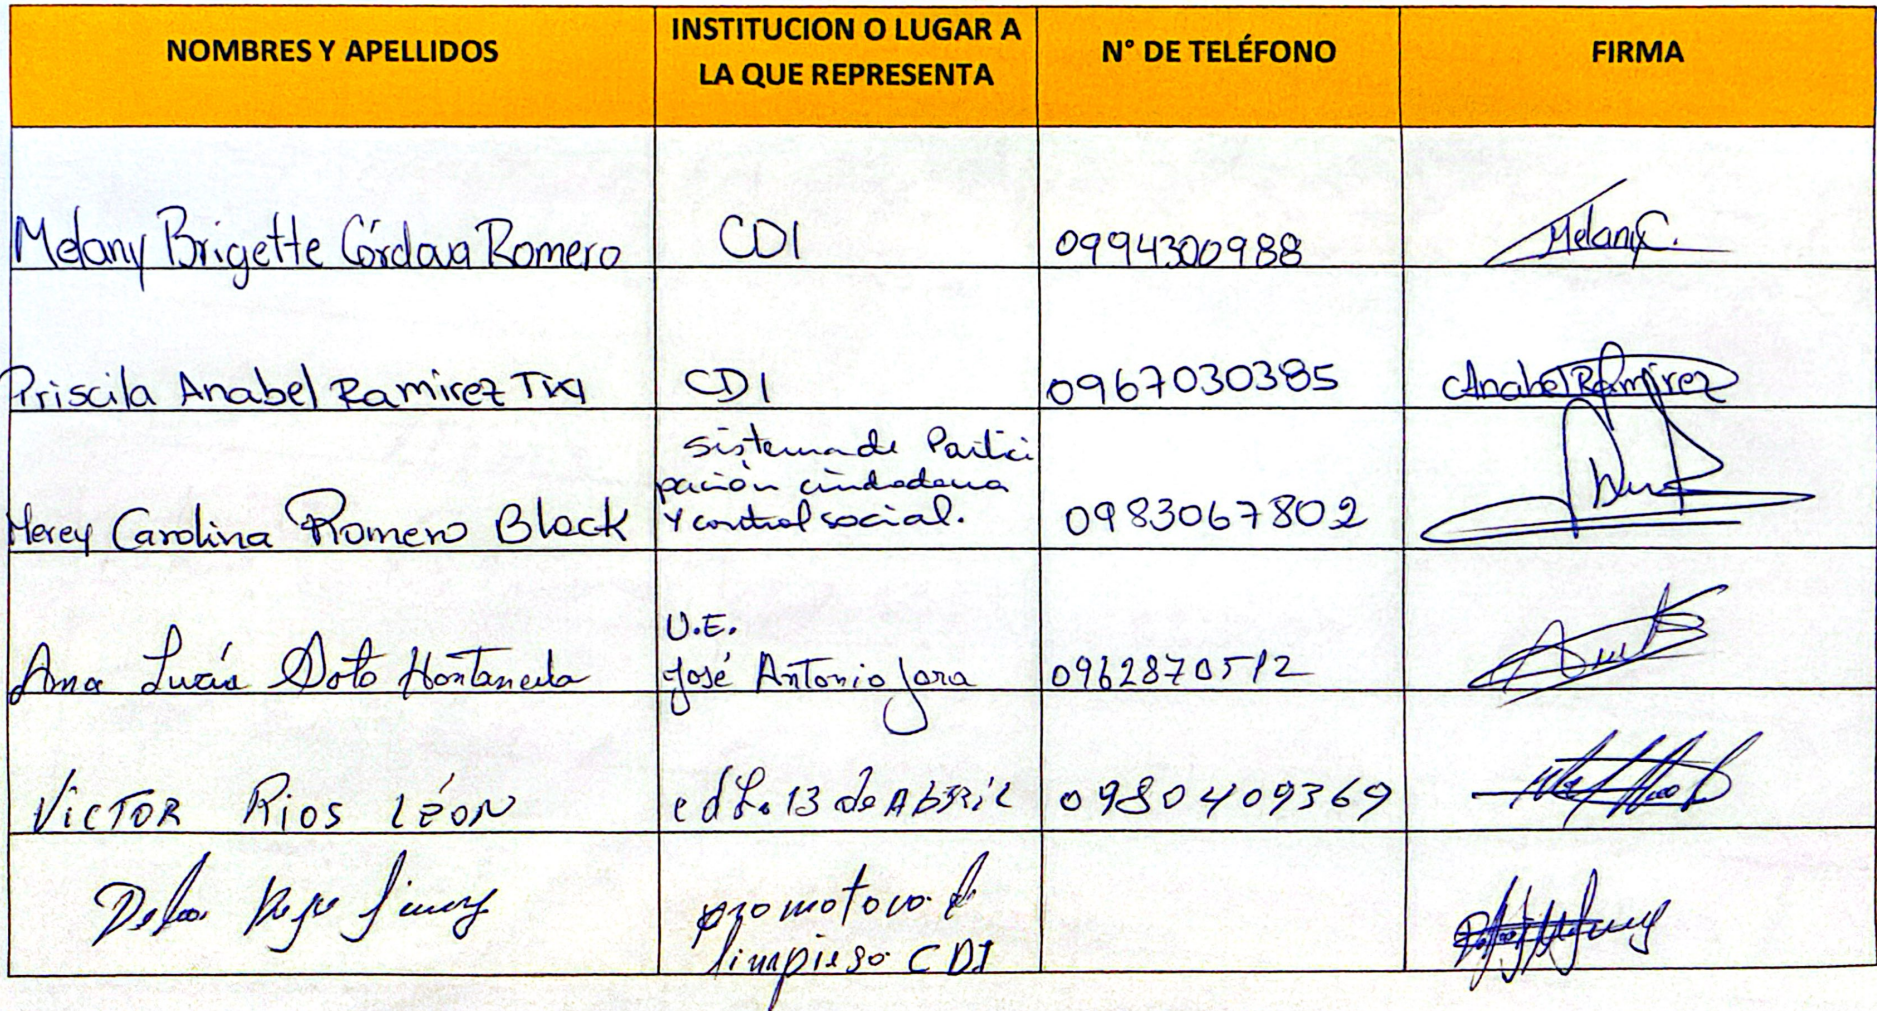 NOMBRES Y APELLIDOS
INSTITUCION O LUGAR A
LA QUE REPRESENTA
N° DE TELÉFONO
FIRMA
Melany Brigette Córdova Romero
CDI
0994300988
Melany C.
Priscila Anabel Ramirez Tixi
CDI
0967030385
Anabel Ramirez
Sistema de Partici
pación ciudadana
y control social.
Carolina Romero Black
0983067802
U.E.
Ana Lucía Soto Hontaneda
José Antonio Jara
0962870512
VICTOR RIOS LÉON
13 de Abril
0980409369
promotora d
limpieso CDI